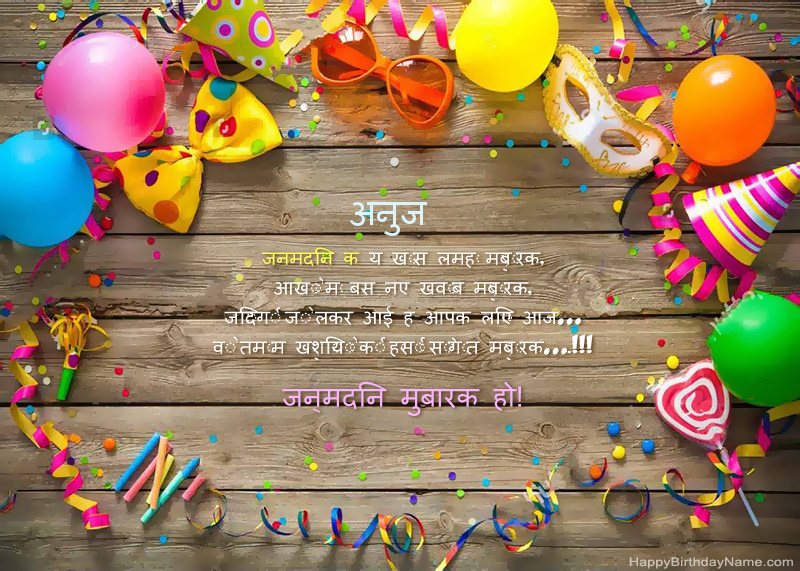 अनुज
जनमदनि क य खास लमहा मबारक,
आखोंम बस नए खवाब मबारक,
जदिगी जो लेकर आई ह आपक लएि आज...
व तमाम खशयिों की हसीं सौगात मबारक...!!!
जन्मदनि मुबारक हो!
HappyBirthdayName.com